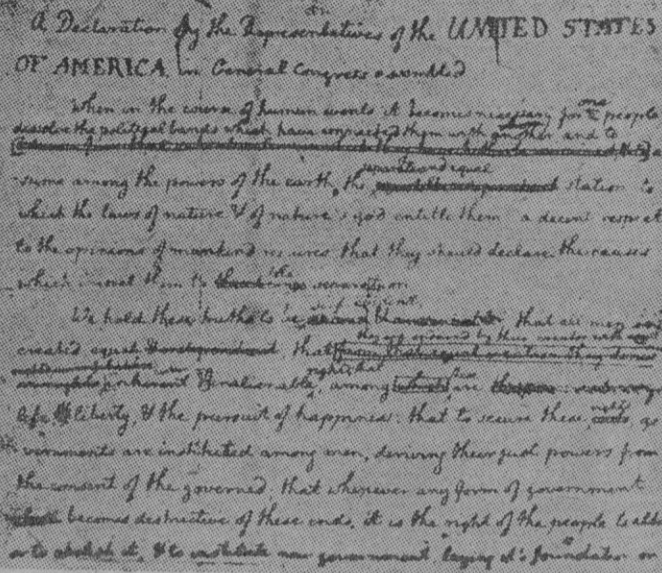 A Declaration by the Representatives of the UNITED STATES
OF AMERICA, in General Congress assembled
When in the course of human events it becomes necessary for one people
dissolve the political bands which have connected them with another, and to
separate and equal
sume among the powers of the earth, the station to
which the laws of nature & of nature's god entitle them a decent respect
to the opinions of mankind requires that they should declare the causes
which impel them to the separation
self evident
We hold these truths to be that all men are
they are endowed by their creator with
created equal that
rights; that
inherent & inalienable among are
life, liberty, & the pursuit of happiness: that to secure these rights, go
vernments are instituted among men, deriving their just powers from
the consent of the governed, that whenever any form of government
becomes destructive of these ends, it is the right of the people to alter
or to abolish it, & to institute new government, laying it's foundation on